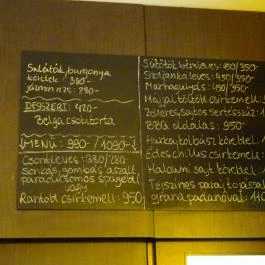 Saláták, burgonya
köretek : 380-
jázmin rizs : 280-
DESSZERT: 420-
Belga csokitorta
MENÜ: 990- / 1090-
Csontleves: 380/280-
sonkás, gombás, aszalt
paradicsomos spagetti
vagy
Rántott csirkemell: 950
Sütőtök krémleves: 450/350-
Szoljanka leves: 450/350-
Marhagulyás: 450/350-
Májjal töltött csirkemell:
Zelleres, sajtos sertésszűz:
BBQ oldalas: 950-
Hurka, kolbász körettel: 1
Édes chilis csirkemell:
Halloumi sajt körettel: 1
Tejszínes paraj tojással
grana padanóval: 110